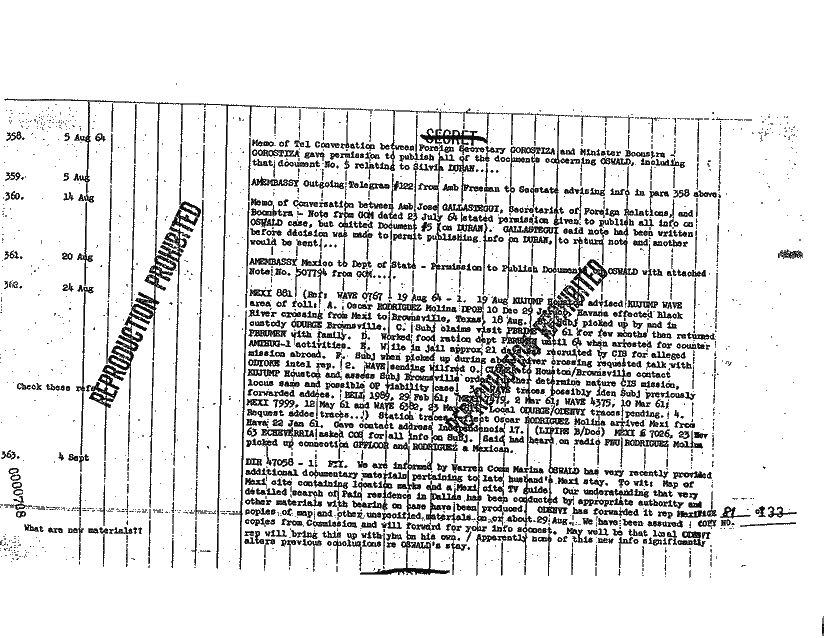 SECRET
358. 5 Aug 64 Memo of Tel Conversation between Foreign Secretary GOROSTIZA and Minister Boonstra -
GOROSTIZA gave permission to publish all of the documents concerning OSWALD, including
that document No. 5 relating to Silvia DURAN.....
359. 5 Aug AMEMBASSY Outgoing Telegram #122 from Amb Freeman to Secstate advising info in para 358 above.
360. 14 Aug Memo of Conversation between Amb Jose GALLASTEGUI, Secretariat of Foreign Relations, and
Boonstra - Note from GOM dated 23 July 64 stated permission given to publish all info on
OSWALD case, but omitted Document #5 (on DURAN). GALLASTEGUI said note had been written
before decision was made to permit publishing info on DURAN, to return note and another
would be sent....
361. 20 Aug AMEMBASSY Mexico to Dept of State - Permission to Publish Documents on OSWALD with attached
Note No. 507794 from GOM.....
362. 24 Aug MEXI 881 (Ref: WAVE 0767 - 19 Aug 64 - 1. 19 Aug KUJUMP advised KUJUMP WAVE
area of foll: A. Oscar RODRIGUEZ Molina DPOB 10 Dec 29 Havana effected Black
River crossing from Mexi to Brownsville, Texas, 18 Aug. Subj picked up by and in
custody ODURGE Brownsville. C. Subj claims visit 61 for few months then returned
PBRUMEN with family. D. Worked food ration dept PBRUMEN until 64 when arrested for counter
activities. E. While in jail approx 21 days was recruited by CIS for alleged
mission abroad. F. Subj when picked up during above river crossing requested talk with
ODYOKE intel rep. 2. WAVE sending Wilfred O. to Houston/Brownsville contact
KUJUMP Houston and assess Subj Brownsville order further determine nature CIS mission,
locus same and possible OP viability case. 3. WAVE traces possibly iden Subj previously
forwarded addees. BELL 1989, 29 Feb 61; 2 Mar 61; WAVE 4375, 10 Mar 61;
MEXI 7999, 12 May 61 and WAVE 6382, 23 Local ODURGE/ODENVY traces pending. 4.
Request addee traces...) Station traces reflect Oscar RODRIGUEZ Molina arrived Mexi from
Hava 22 Jan 61. Gave contact address Independencia 17. (LIFIRE B/Doc) MEXI 7026, 23 Nov
63 ECHEVERRIA asked COS for all info on Subj. Said had heard on radio FNU RODRIGUEZ Molina
picked up connection GPFLOOR and RODRIGUEZ a Mexican.
Check these refs
363. 4 Sept DIR 47058 - 1. FYI. We are informed by Warren Comm Marina OSWALD has very recently provided
additional documentary materials pertaining to late husband's Mexi stay. To wit: Map of
Mexi cite containing location marks and a Mexi cite TV guide. Our understanding that very
detailed search of Pain residence in Dallas has been conducted by appropriate authority and
other materials with bearing on case have been produced. ODENVY has forwarded it rep Mexi
copies of map and other unspecified materials on or about 29 Aug. We have been assured
copies from Commission and will forward for your info soonest. May well be that local ODENVY
rep will bring this up with you on his own. / Apparently none of this new info significantly
alters previous conclusions re OSWALD's stay.
What are new materials??
PAGE 81
COPY NO.
REPRODUCTION PROHIBITED
0000708